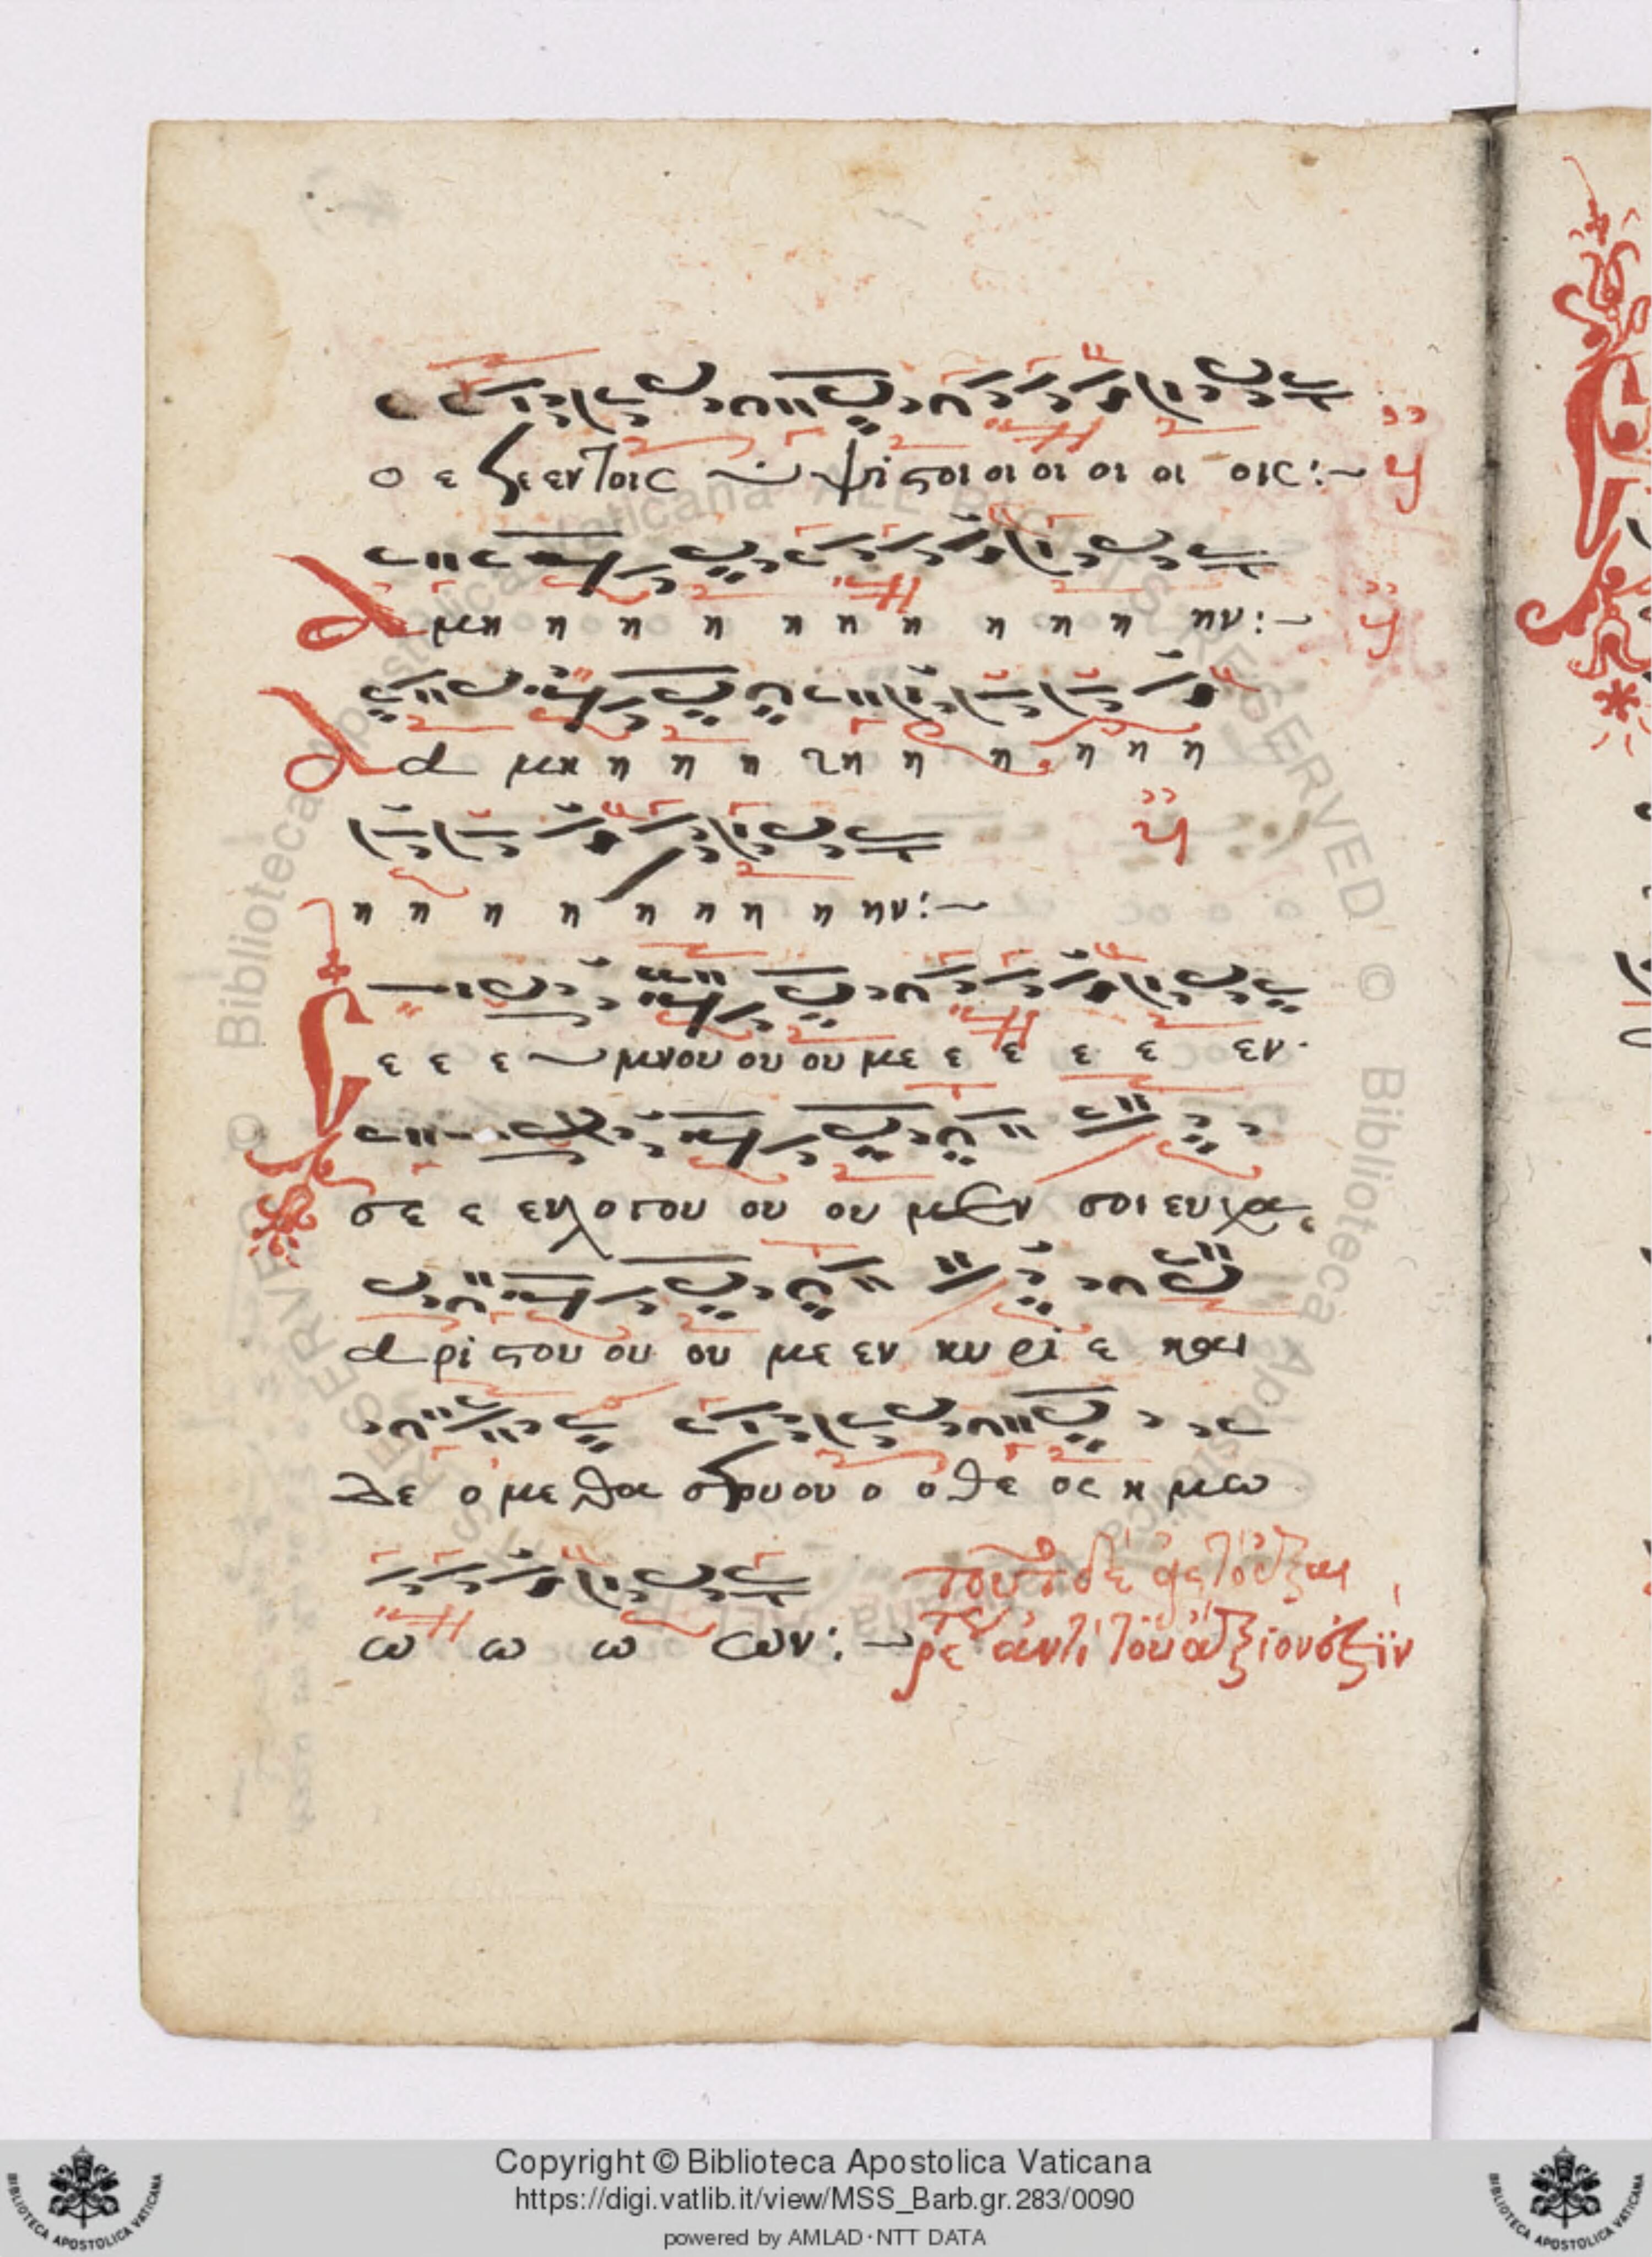 ο ε ξε εν τοις υ ψι ϛοι οι οι οι οι οις:~
Α μη η η η η η η η η η ην:~
Α α μη η η η γη η η η η η
η η η η η η η η ην:~
Σ ε ε ε υμνου ου ου με ε ε ε ε εν·
σε ε ευλογου ου ου μεν σοι ευχα
α ρι ϛου ου ου με εν κυ ρι ε και
δε ο με θα σου ου ο ο θε ος η μω
ω ω ω ων:~
ἀντὶ τοῦ ἄξιον
Copyright © Biblioteca Apostolica Vaticana
https://digi.vatlib.it/view/MSS_Barb.gr.283/0090
powered by AMLAD · NTT DATA